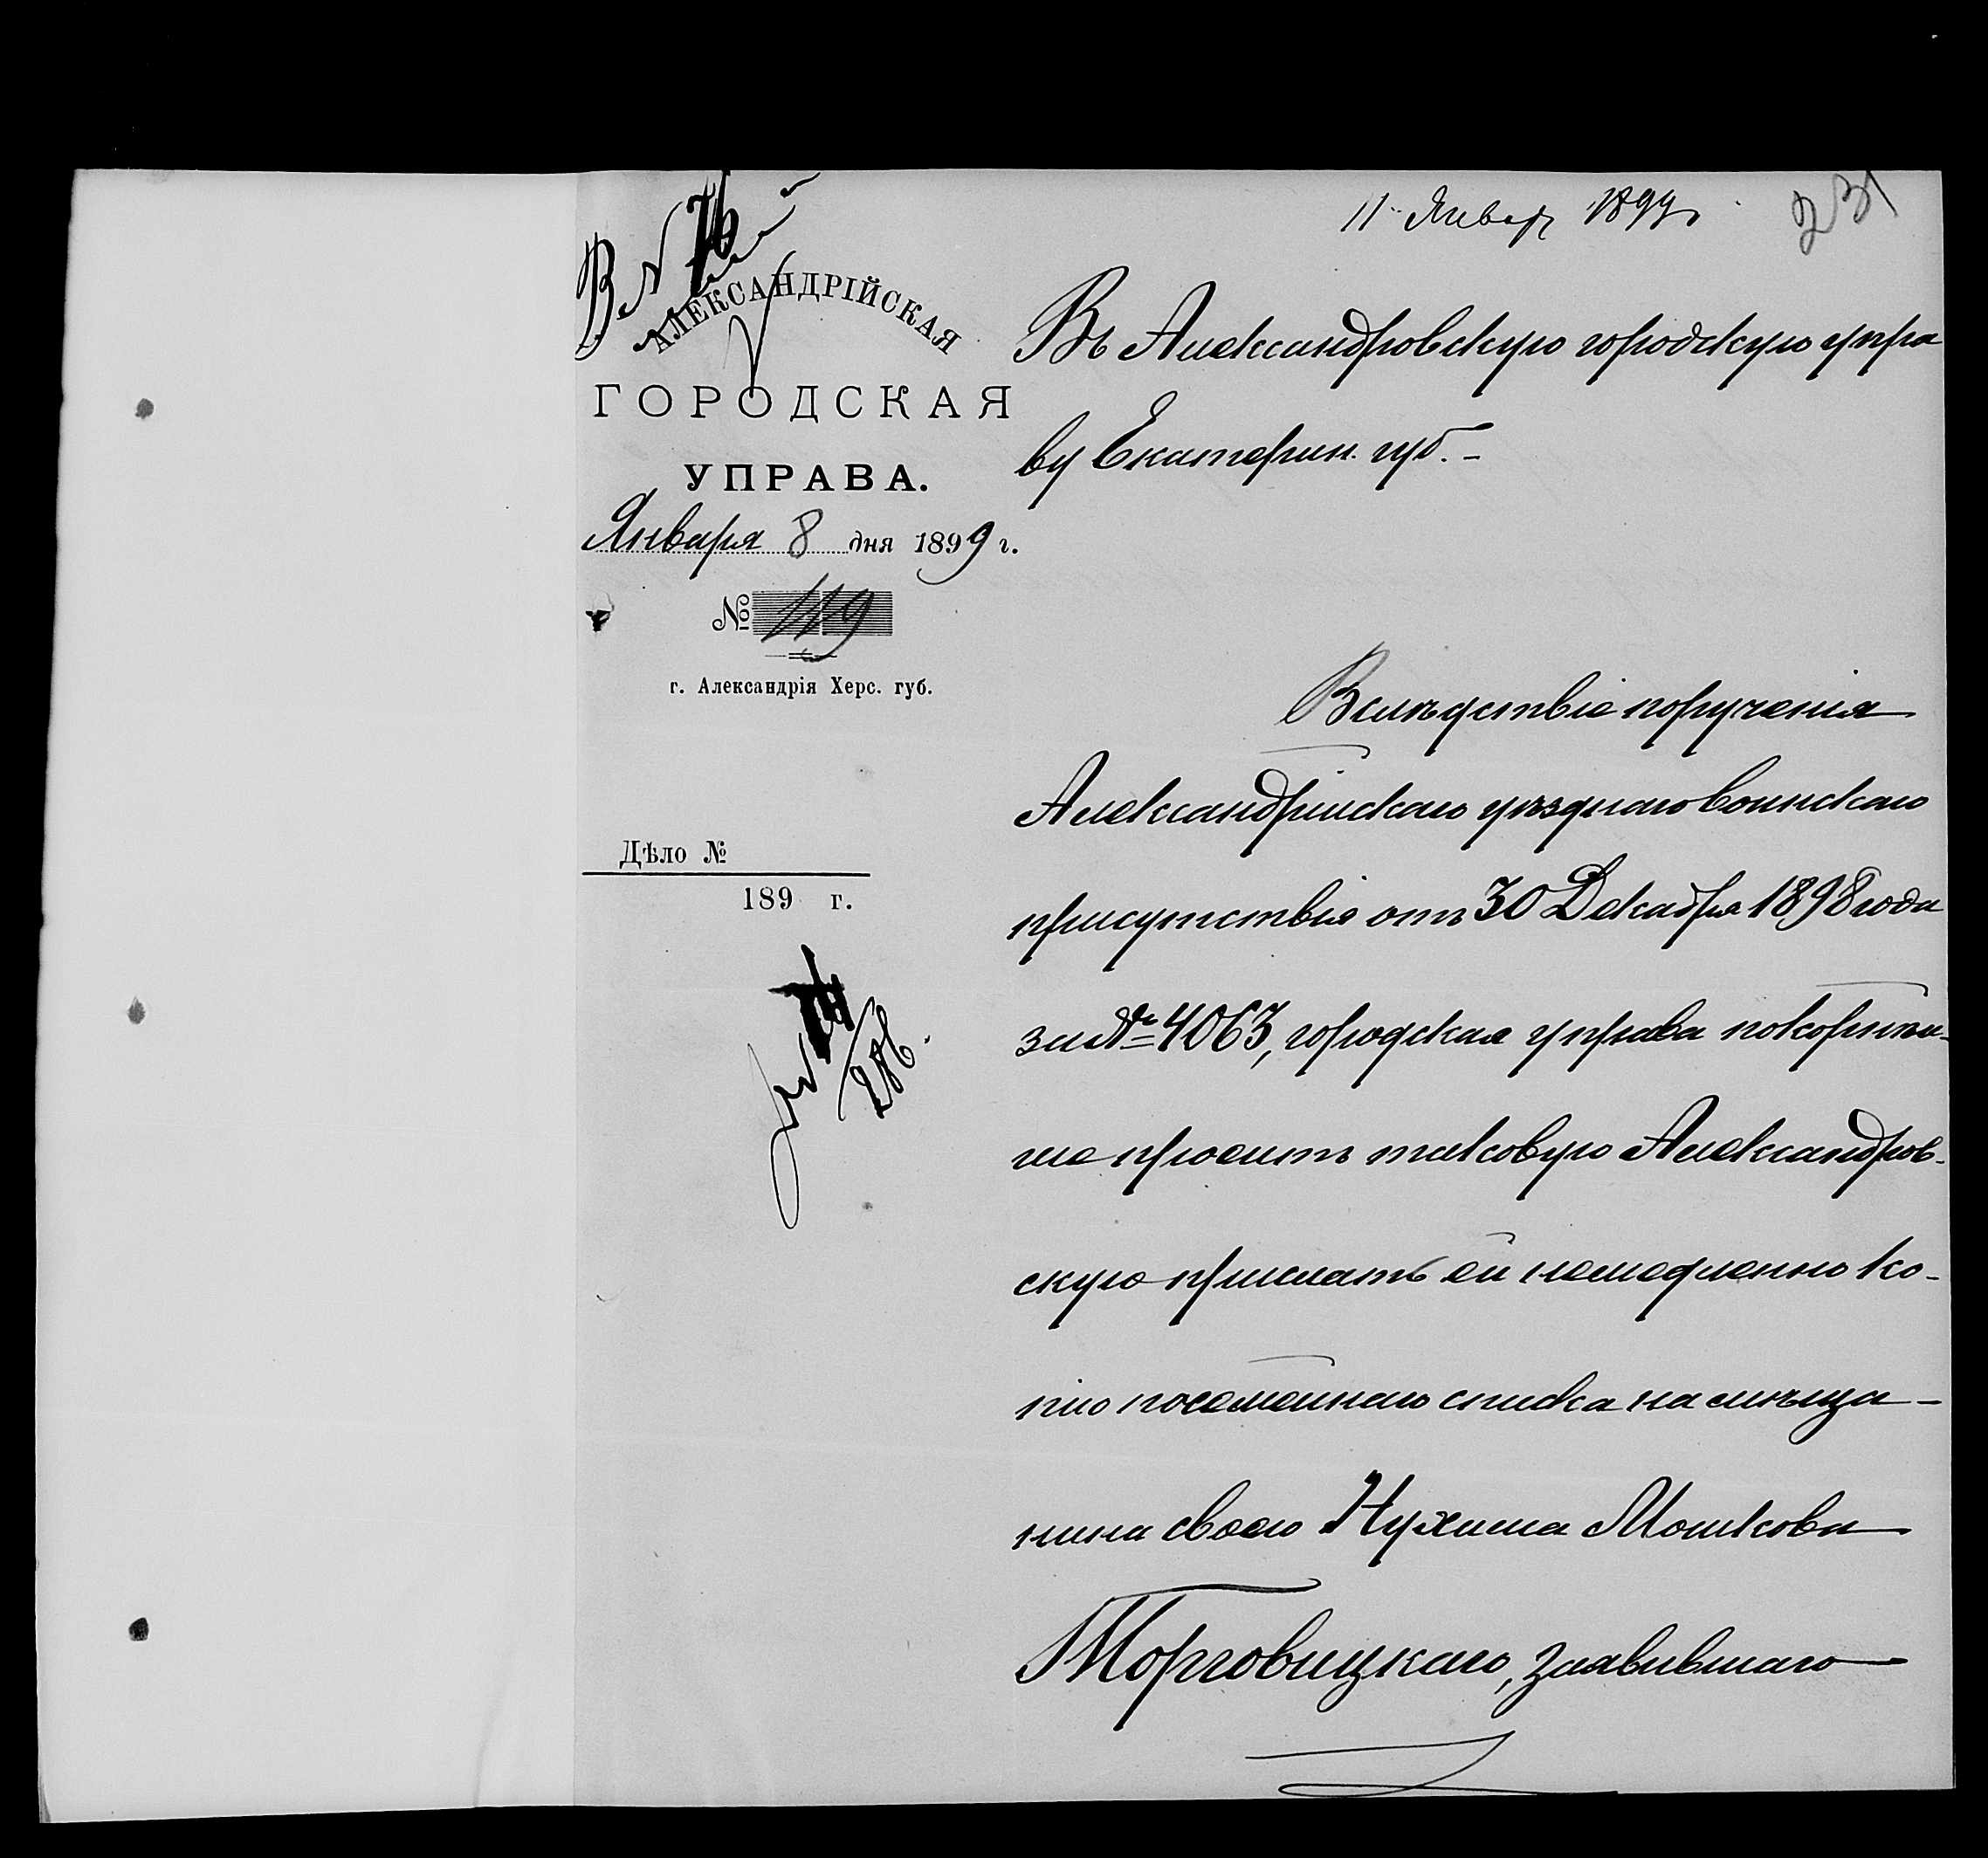 11 Январ 1899
231
В № 76
АЛЕКСАНДРІЙСКАЯ
ГОРОДСКАЯ
УПРАВА.
Января 8 дня 1899 г.
№ 119
г. Александрія Херс. губ.
Дѣло №
189 г.
Въ Александровскую городскую упра
ву Екатерин. губ. -
Вслѣдствіе порученія
Александрійскаго уѣзднаго воинскаго
присутствія отъ 30 Декабря 1898 года
за № 4063, городская управа покорнѣй-
ше проситъ таковую Александров-
скую прислать ей немедленно ко-
пію посемейнаго списка на мѣща-
нина своего Нухима Мошкова
Торговицкаго, заявившаго